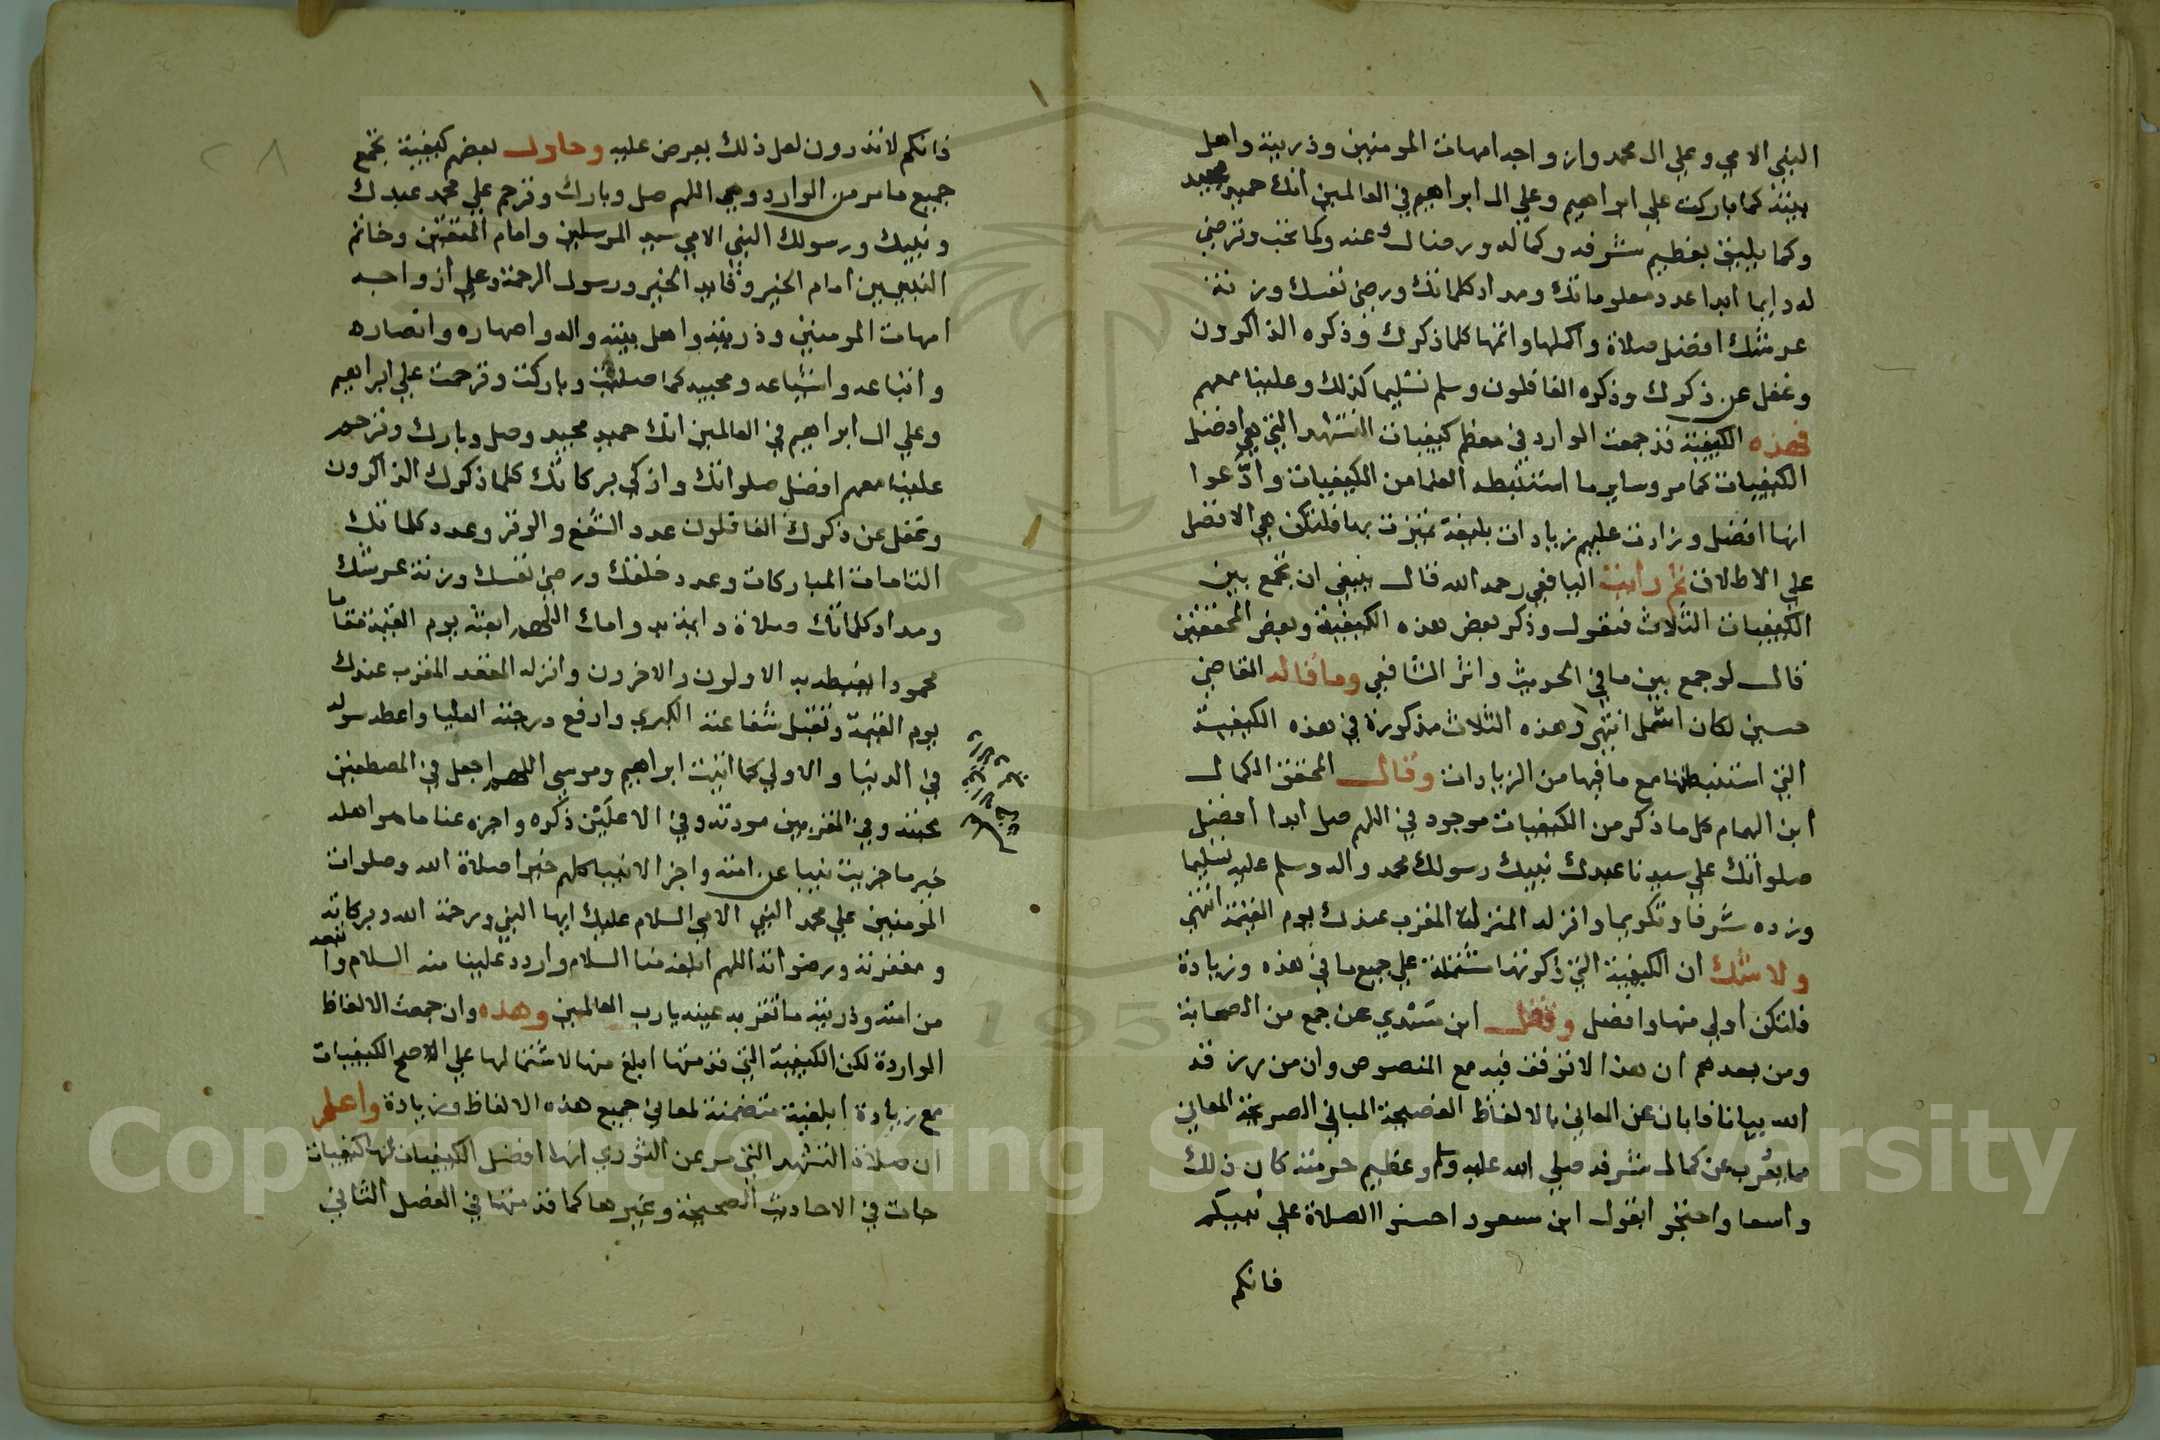 النبي الامي وعلي ال محمد وازواجه امهات المومنين وذريته واهل
بيته كما باركت علي ابراهيم وعلي ال ابراهيم في العالمين انك حميد مجيد
وكما يليق بعظيم شرفه وكماله ورضاك عنه وكما تحب وترضي
له دايما ابدا عدد معلوماتك ومداد كلماتك ورضي نفسك وزنة
عرشك افضل صلاة واكملها واتمها كلما ذكرك وذكره الذاكرون
وغفل عن ذكرك وذكره الغافلون وسلم تسليما كذلك وعلينا معهم
فهذه الكيفية قد جمعت الوارد في معظم كيفيات التشهد التي هي افضل
الكيفيات كما مر وساير ما استنبطه العلما من الكيفيات وادّعوا
انها افضل وزادت عليهم زيادات بليغة تميزت بها فلتكن هي الافضل
علي الاطلاق ثم رايت اليافعي رحمه الله قال ينبغي ان يجمع بين
الكيفيات الثلاث فنقول وذكر بعض هذه الكيفية وبعض المحققين
قال لو جمع بين ما في الحديث واثر الشافعي وما قاله القاضي
حسين لكان اشمل انتهي وهذه الثلاث مذكورة في هذه الكيفية
التي استنبطتها مع ما فيها من الزيادات وقال المحقق الكمال
ابن الهمام كل ما ذكر من الكيفيات موجود في اللهم صل ابدا افضل
صلواتك علي سيدنا عبدك نبيك رسولك محمد واله وسلم عليه تسليما
وزده شرفا وتكريما وانزله المنزلة المقرب عندك يوم القيمة انتهي
ولا شك ان الكيفية التي ذكرتها مشتملة علي جميع ما في هذه وزيادة
فلتكن اولي منها وافضل ونقل ابن مسدي عن جمع من الصحابة
ومن بعدهم ان هذا لا توقف فيه مع المنصوص وان من رزقه
الله بيانا فابان عن المعاني بالالفاظ الفصيحة المباني الصريحة المعاني
مما يعرب عن كمال شرفه صلي الله عليه وسلم وعظيم حرمته كان ذلك
واسعا واحتجوا بقول ابن مسعود احسنوا الصلاة علي نبيكم
فانكم
٢٨
فانكم لا تدرون لعل ذلك يعرض عليه وحاول بعضهم كيفية تجمع
جميع ما مر من الوارد وهي اللهم صل وبارك وترحم علي محمد عبدك
ونبيك ورسولك النبي الامي سيد المرسلين وامام المتقين وخاتم
النبيين امام الخير وقايد الخير ورسول الرحمة وعلي ازواجه
امهات المومنين وذريته واهل بيته واله واصهاره وانصاره
واتباعه واشياعه ومحبيه كما صليت وباركت وترحمت علي ابراهيم
وعلي ال ابراهيم في العالمين انك حميد مجيد وصل وبارك وترحم
علينا معهم افضل صلواتك وازكي بركاتك كلما ذكرك الذاكرون
وغفل عن ذكرك الغافلون عدد الشفع والوتر وعدد كلماتك
التامات المباركات وعدد خلقك ورضي نفسك وزنة عرشك
ومداد كلماتك صلاة دايمة بدوامك اللهم ابعثه يوم القيمة مقاما
محمودا يغبطه به الاولون والاخرون وانزله المقعد المقرب عندك
يوم القيمة وتقبل شفاعته الكبري وارفع درجته العليا واعطه سوله
في الدنيا والاولي كما اتيت ابراهيم وموسي اللهم اجعل في المصطفين
محبته وفي المقربين مودته وفي الاعلَيْن ذكره واجزه عنا ما هو اهله
خير ما جزيت نبيا عن امته واجز الانبيا كلهم خيرا صلاة الله وصلوات
المومنين علي محمد النبي الامي السلام عليك ايها النبي ورحمة الله وبركاته
ومغفرته ورضوانه اللهم ابلغه منا السلام واردد علينا منه السلام واتبعه
من امته وذريته ما تقر به عينه يا رب العالمين وهذه وان جمعت الالفاظ
الواردة لكن الكيفية التي قدمتها ابلغ منها لاشتمالها علي الاصح الكيفيات
مع زيادة ابلغية متضمنة لمعاني جميع هذه الالفاظ وزيادة واعلم
ان صلاة التشهد التي مر عن النووي انها افضل الكيفيات لها كيفيات
جات في الاحاديث الصحيحة وغيرها كما قدمتها في الفصل الثاني
Copyright © King Saud University
195